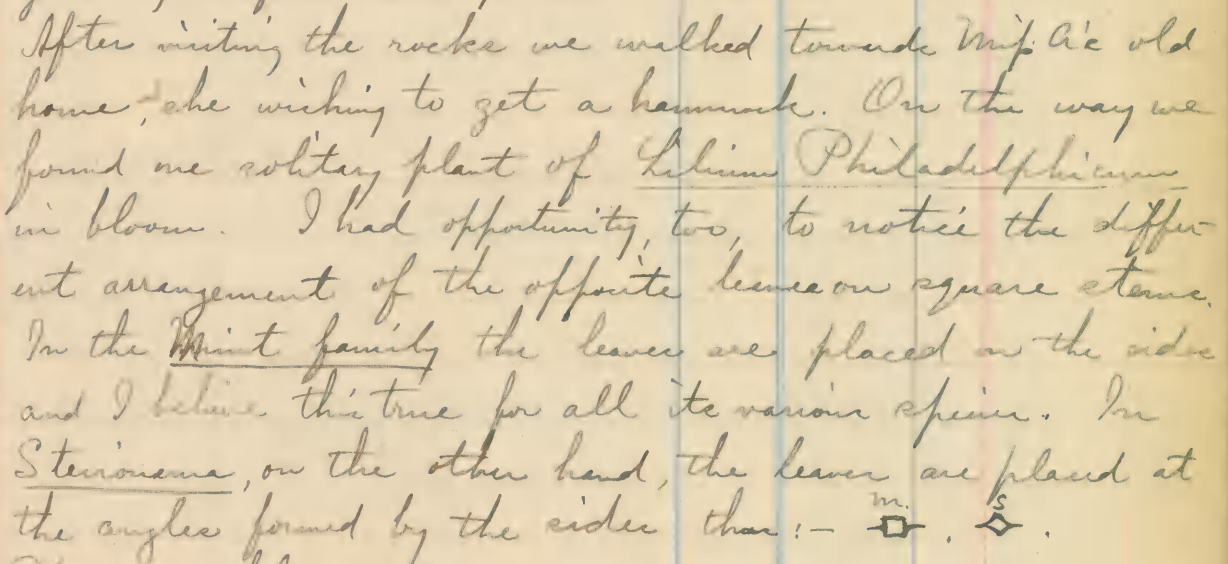 After visiting the rocks we walked towards Miss A's old
home, she wishing to get a hammock. On the way we
found one solitary plant of Lilium Philadelphicum
in bloom. I had opportunity, too, to notice the differ-
ent arrangement of the opposite leaves on square stems.
In the Mint family the leaves are placed on the sides
and I believe this true for all its various species. In
Steironema, on the other hand, the leaves are placed at
the angles formed by the sides thus:— m. , s .